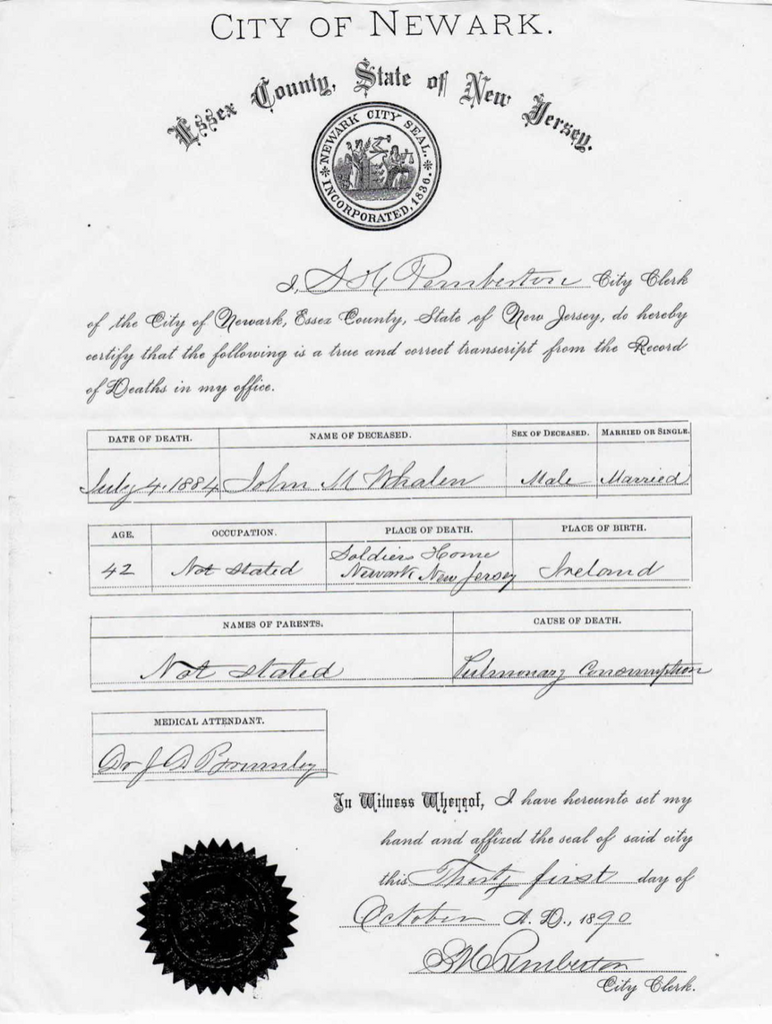 CITY OF NEWARK.
Essex County, State of New Jersey.
NEWARK CITY SEAL.
INCORPORATED. 1836.
I, S H Pemberton City Clerk
of the City of Newark, Essex County, State of New Jersey, do hereby
certify that the following is a true and correct transcript from the Record
of Deaths in my office.
DATE OF DEATH. NAME OF DECEASED. SEX OF DECEASED. MARRIED OR SINGLE.
July 4. 1884 John M Whalen Male Married
AGE. OCCUPATION. PLACE OF DEATH. PLACE OF BIRTH.
42 Not stated Soldiers Home Newark New Jersey Ireland
NAMES OF PARENTS. CAUSE OF DEATH.
Not stated Pulmonary Consumption
MEDICAL ATTENDANT.
Dr J D Brumley
In Witness Whereof, I have hereunto set my
hand and affixed the seal of said city
this Thirty first day of
October A. D., 1890
S H Pemberton
City Clerk.